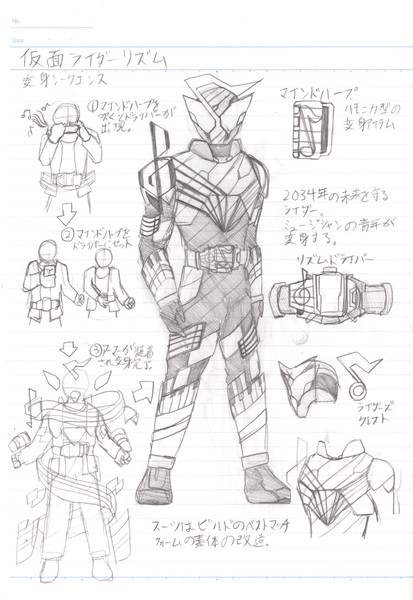 No.
Date
仮面ライダーリズム
変身シークエンス
①マインドハープを
吹くとドライバーが
出現。
②マインドハープを
ドライバーにセット
③アーマーが装着
され変身完了。
マインドハープ
ハモニカ型の
変身アイテム
2034年の未来を守る
ライダー。
ミュージシャンの青年が
変身する。
リズムドライバー
ライダーズ
クレスト
スーツはビルドのベストマッチ
フォームの素体の改造。